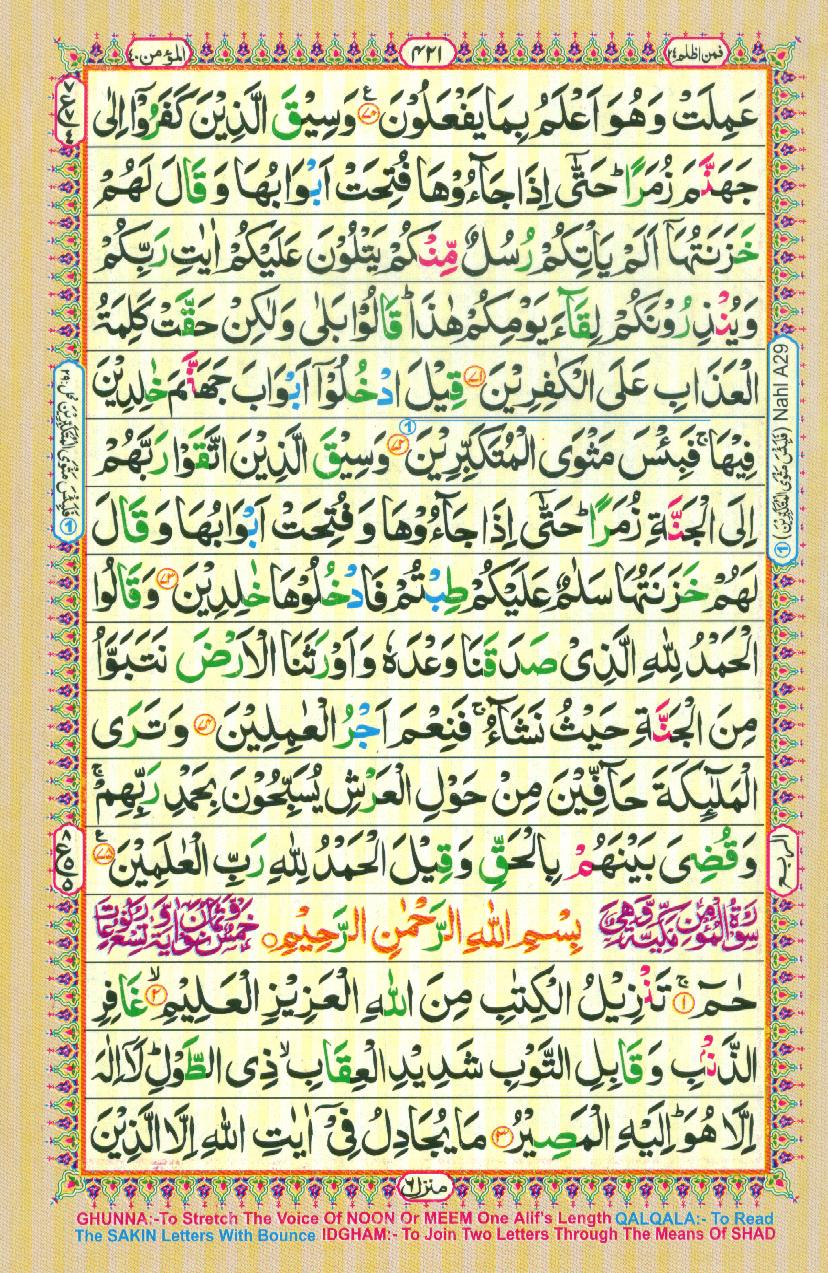 فمن اظلم ٢٤
٤٢١
المؤمن ٤٠
عَمِلَتْ وَهُوَ اَعْلَمُ بِمَا يَفْعَلُوْنَ ﴿٧٠﴾ وَسِيْقَ الَّذِيْنَ كَفَرُوْۤا اِلٰى
جَهَنَّمَ زُمَرًا ؕ حَتّٰۤى اِذَا جَآءُوْهَا فُتِحَتْ اَبْوَابُهَا وَ قَالَ لَهُمْ
خَزَنَتُهَاۤ اَلَمْ يَاْتِكُمْ رُسُلٌ مِّنْكُمْ يَتْلُوْنَ عَلَيْكُمْ اٰيٰتِ رَبِّكُمْ
وَيُنْذِرُوْنَكُمْ لِقَآءَ يَوْمِكُمْ هٰذَا ؕ قَالُوْا بَلٰى وَلٰكِنْ حَقَّتْ كَلِمَةُ
الْعَذَابِ عَلَى الْكٰفِرِيْنَ ﴿٧١﴾ قِيْلَ ادْخُلُوْۤا اَبْوَابَ جَهَنَّمَ خٰلِدِيْنَ
فِيْهَا ۚ فَبِئْسَ مَثْوَى الْمُتَكَبِّرِيْنَ ﴿٧٢﴾ وَسِيْقَ الَّذِيْنَ اتَّقَوْا رَبَّهُمْ
اِلَى الْجَنَّةِ زُمَرًا ؕ حَتّٰۤى اِذَا جَآءُوْهَا وَ فُتِحَتْ اَبْوَابُهَا وَ قَالَ
لَهُمْ خَزَنَتُهَا سَلٰمٌ عَلَيْكُمْ طِبْتُمْ فَادْخُلُوْهَا خٰلِدِيْنَ ﴿٧٣﴾ وَقَالُوا
الْحَمْدُ لِلّٰهِ الَّذِيْ صَدَقَنَا وَعْدَهٗ وَاَوْرَثَنَا الْاَرْضَ نَتَبَوَّاُ
مِنَ الْجَنَّةِ حَيْثُ نَشَآءُ ۚ فَنِعْمَ اَجْرُ الْعٰمِلِيْنَ ﴿٧٤﴾ وَتَرَى
الْمَلٰٓئِكَةَ حَآفِّيْنَ مِنْ حَوْلِ الْعَرْشِ يُسَبِّحُوْنَ بِحَمْدِ رَبِّهِمْ ۚ
وَقُضِيَ بَيْنَهُمْ بِالْحَقِّ وَقِيْلَ الْحَمْدُ لِلّٰهِ رَبِّ الْعٰلَمِيْنَ ﴿٧٥﴾
سُوْرَةُ الْمُؤْمِنِ مَكِّيَّةٌ وَّهِيَ بِسْمِ اللّٰهِ الرَّحْمٰنِ الرَّحِيْمِ خَمْسٌ وَّثَمَانُوْنَ اٰيَةً وَّتِسْعُ رُكُوْعَاتٍ
حٰمٓ ﴿١﴾ تَنْزِيْلُ الْكِتٰبِ مِنَ اللّٰهِ الْعَزِيْزِ الْعَلِيْمِ ﴿٢﴾ غَافِرِ
الذَّنْۢبِ وَقَابِلِ التَّوْبِ شَدِيْدِ الْعِقَابِ ۙ ذِي الطَّوْلِ ؕ لَاۤ اِلٰهَ
اِلَّا هُوَ ؕ اِلَيْهِ الْمَصِيْرُ ﴿٣﴾ مَا يُجَادِلُ فِيْۤ اٰيٰتِ اللّٰهِ اِلَّا الَّذِيْنَ
Nahl A29 (فَلَبِئْسَ مَثْوَى الْمُتَكَبِّرِيْنَ) ①
منزل ٦
GHUNNA:-To Stretch The Voice Of NOON Or MEEM One Alif's Length QALQALA:- To Read
The SAKIN Letters With Bounce IDGHAM:- To Join Two Letters Through The Means Of SHAD